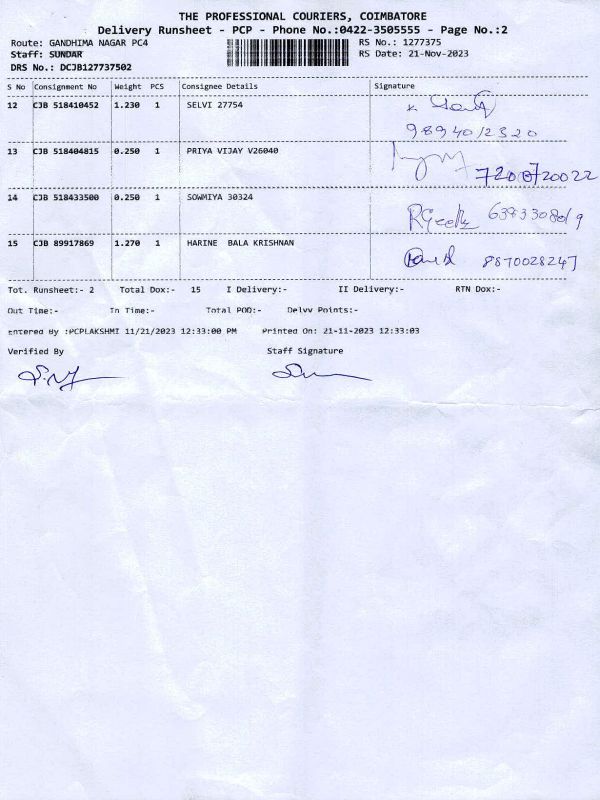 THE PROFESSIONAL COURIERS, COIMBATORE
Delivery Runsheet - PCP - Phone No.:0422-3505555 - Page No.:2
Route: GANDHIMA NAGAR PC4 RS No.: 1277375
Staff: SUNDAR RS Date: 21-Nov-2023
DRS No.: DCJB127737502
S No Consignment No Weight PCS Consignee Details Signature
12 CJB 518410452 1.230 1 SELVI 27754
9894012320
13 CJB 518404815 0.250 1 PRIYA VIJAY V26040
7200720022
14 CJB 518433500 0.250 1 SOWMIYA 30324
15 CJB 89917869 1.270 1 HARINE BALA KRISHNAN
8870028247
Tot. Runsheet:- 2 Total Dox:- 15 I Delivery:- II Delivery:- RTN Dox:-
Out Time:- In Time:- Total POD:- Delvv Points:-
Entered By :PCPLAKSHMI 11/21/2023 12:33:00 PM Printed On: 21-11-2023 12:33:03
Verified By Staff Signature